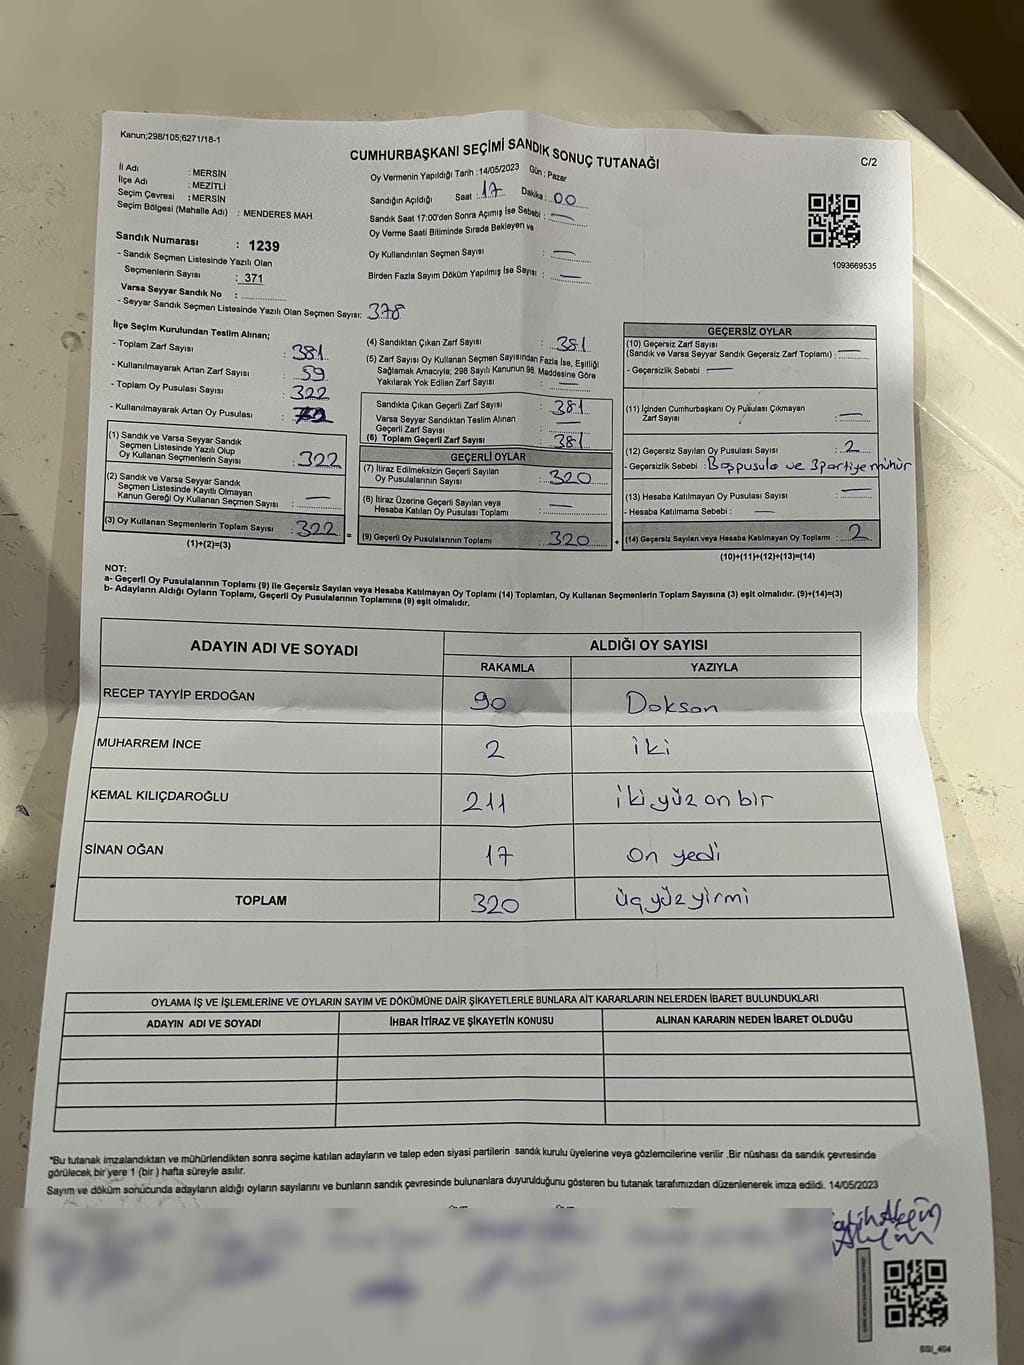 Kanun;298/105;6271/18-1
CUMHURBAŞKANI SEÇİMİ SANDIK SONUÇ TUTANAĞI
C/2
İl Adı : MERSİN
İlçe Adı : MEZİTLİ
Seçim Çevresi : MERSİN
Seçim Bölgesi (Mahalle Adı) : MENDERES MAH.
Oy Vermenin Yapıldığı Tarih :14/05/2023 Gün : Pazar
Sandığın Açıldığı Saat : 17 Dakika : 00
Sandık Saat 17:00'den Sonra Açımış İse Sebebi : —
Oy Verme Saati Bitiminde Sırada Bekleyen ve
Oy Kullandırılan Seçmen Sayısı : —
Birden Fazla Sayım Döküm Yapılmış İse Sayısı : —
1093669535
Sandık Numarası : 1239
- Sandık Seçmen Listesinde Yazılı Olan
Seçmenlerin Sayısı : 371
Varsa Seyyar Sandık No :
- Seyyar Sandık Seçmen Listesinde Yazılı Olan Seçmen Sayısı: 378
İlçe Seçim Kurulundan Teslim Alınan;
- Toplam Zarf Sayısı : 381
- Kullanılmayarak Artan Zarf Sayısı : 59
- Toplam Oy Pusulası Sayısı : 322
- Kullanılmayarak Artan Oy Pusulası :
(1) Sandık ve Varsa Seyyar Sandık
Seçmen Listesinde Yazılı Olup
Oy Kullanan Seçmenlerin Sayısı : 322
(2) Sandık ve Varsa Seyyar Sandık
Seçmen Listesinde Kayıtlı Olmayan
Kanun Gereği Oy Kullanan Seçmen Sayısı : —
(3) Oy Kullanan Seçmenlerin Toplam Sayısı : 322 =
(1)+(2)=(3)
(4) Sandıktan Çıkan Zarf Sayısı : 381
(5) Zarf Sayısı Oy Kullanan Seçmen Sayısından Fazla İse, Eşitliği
Sağlamak Amacıyla; 298 Sayılı Kanunun 98. Maddesine Göre
Yakılarak Yok Edilen Zarf Sayısı : —
Sandıkta Çıkan Geçerli Zarf Sayısı : 381
Varsa Seyyar Sandıktan Teslim Alınan
Geçerli Zarf Sayısı : —
(6) Toplam Geçerli Zarf Sayısı : 381
GEÇERLİ OYLAR
(7) İtiraz Edilmeksizin Geçerli Sayılan
Oy Pusulalarının Sayısı : 320
(8) İtiraz Üzerine Geçerli Sayılan veya
Hesaba Katılan Oy Pusulası Toplamı : —
(9) Geçerli Oy Pusulalarının Toplamı : 320 +
GEÇERSİZ OYLAR
(10) Geçersiz Zarf Sayısı
(Sandık ve Varsa Seyyar Sandık Geçersiz Zarf Toplamı) : —
- Geçersizlik Sebebi : —
(11) İçinden Cumhurbaşkanı Oy Pusulası Çıkmayan
Zarf Sayısı : —
(12) Geçersiz Sayılan Oy Pusulası Sayısı : 2
- Geçersizlik Sebebi : Boş pusula ve 3 partiye mühür
(13) Hesaba Katılmayan Oy Pusulası Sayısı : —
- Hesaba Katılmama Sebebi : —
(14) Geçersiz Sayılan veya Hesaba Katılmayan Oy Toplamı : 2
(10)+(11)+(12)+(13)=(14)
NOT:
a- Geçerli Oy Pusulalarının Toplamı (9) ile Geçersiz Sayılan veya Hesaba Katılmayan Oy Toplamı (14) Toplamları, Oy Kullanan Seçmenlerin Toplam Sayısına (3) eşit olmalıdır. (9)+(14)=(3)
b- Adayların Aldığı Oyların Toplamı, Geçerli Oy Pusulalarının Toplamına (9) eşit olmalıdır.
ADAYIN ADI VE SOYADI ALDIĞI OY SAYISI
RAKAMLA YAZIYLA
RECEP TAYYİP ERDOĞAN 90 Doksan
MUHARREM İNCE 2 iki
KEMAL KILIÇDAROĞLU 211 iki yüz on bir
SİNAN OĞAN 17 On yedi
TOPLAM 320 üçyüzyirmi
OYLAMA İŞ VE İŞLEMLERİNE VE OYLARIN SAYIM VE DÖKÜMÜNE DAİR ŞİKAYETLERLE BUNLARA AİT KARARLARIN NELERDEN İBARET BULUNDUKLARI
ADAYIN ADI VE SOYADI İHBAR İTİRAZ VE ŞİKAYETİN KONUSU ALINAN KARARIN NEDEN İBARET OLDUĞU
*Bu tutanak imzalandıktan ve mühürlendikten sonra seçime katılan adayların ve talep eden siyasi partilerin sandık kurulu üyelerine veya gözlemcilerine verilir .Bir nüshası da sandık çevresinde
görülecek bir yere 1 (bir ) hafta süreyle asılır.
Sayım ve döküm sonucunda adayların aldığı oyların sayılarını ve bunların sandık çevresinde bulunanlara duyurulduğunu gösteren bu tutanak tarafımızdan düzenlenerek imza edildi. 14/05/2023
SSI_404